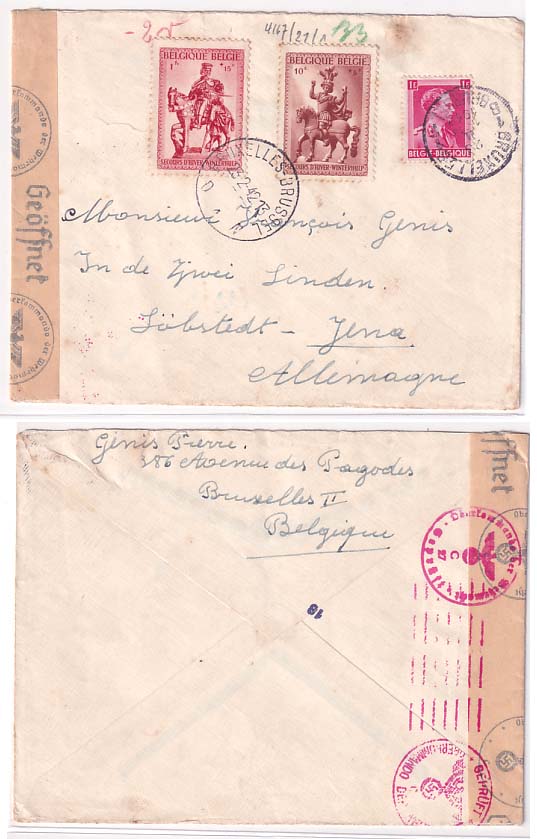 -25 4167/21/1 33
1F +15c
BELGIQUE BELGIE
SECOURS D'HIVER - WINTERHULP
10c +5c
BELGIQUE BELGIE
SECOURS D'HIVER - WINTERHULP
1F 1F
BELGIE-BELGIQUE
BRUXELLES BRUSSEL
BRUXELLES
Geöffnet
Oberkommando der Wehrmacht
Oberkommando der Wehrmacht
Monsieur François Genis
In de Zwei Linden.
Löbstedt - Jena
Allemagne
Génis Pierre.
386 Avenue des Pagodes
Bruxelles II
Belgique
18
ffnet
Oberkommando der Wehrmacht
C
OBERKOMMANDO